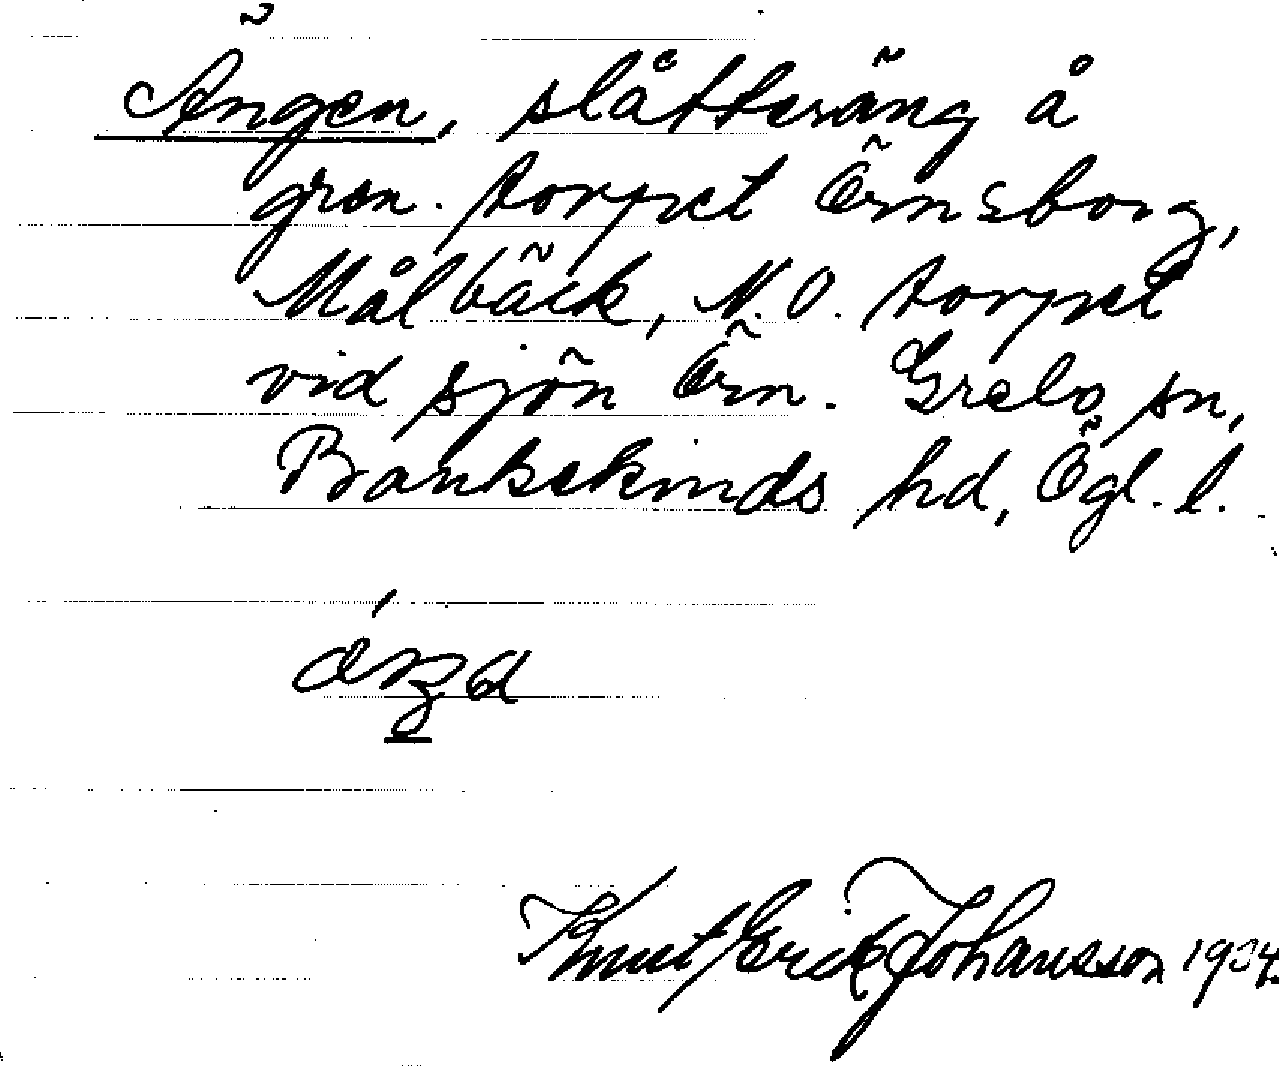 Ängen, slåtteräng å
gren. torpet Örnsborg,
Målbäck, N.O. torpet
vid sjön Örn. Grebo sn,
Bankekinds hd, Ögl. l.
Knut Erik Johansson 1934.